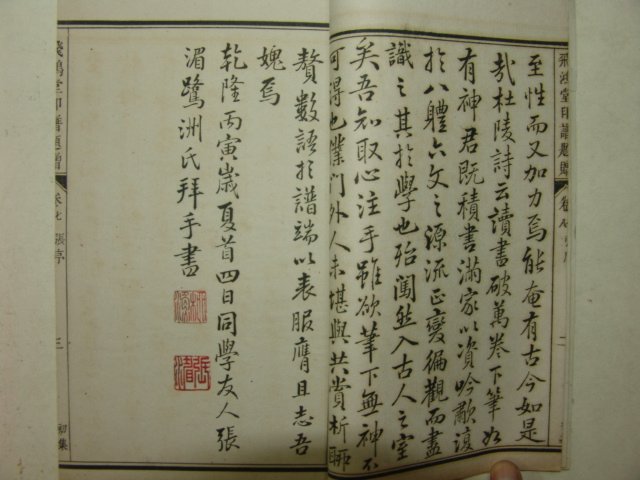 飛鴻堂印譜題贈
至性而又加力焉能奄有古今如是
哉杜陵詩云讀書破萬卷下筆如
有神君既積書滿家以資吟歗復
於八體六文之源流正變徧觀而盡
識之其於學也殆闖然入古人之室
矣吾知取心注手雖欲筆下無神不
可得也業門外人未堪與共賞析聊
贅數語於譜端以表服膺且志吾
媿焉
乾隆丙寅歲夏首四日同學友人張
湄鷺洲氏拜手書
飛鴻堂印譜題贈
卷七
張序
三
初集